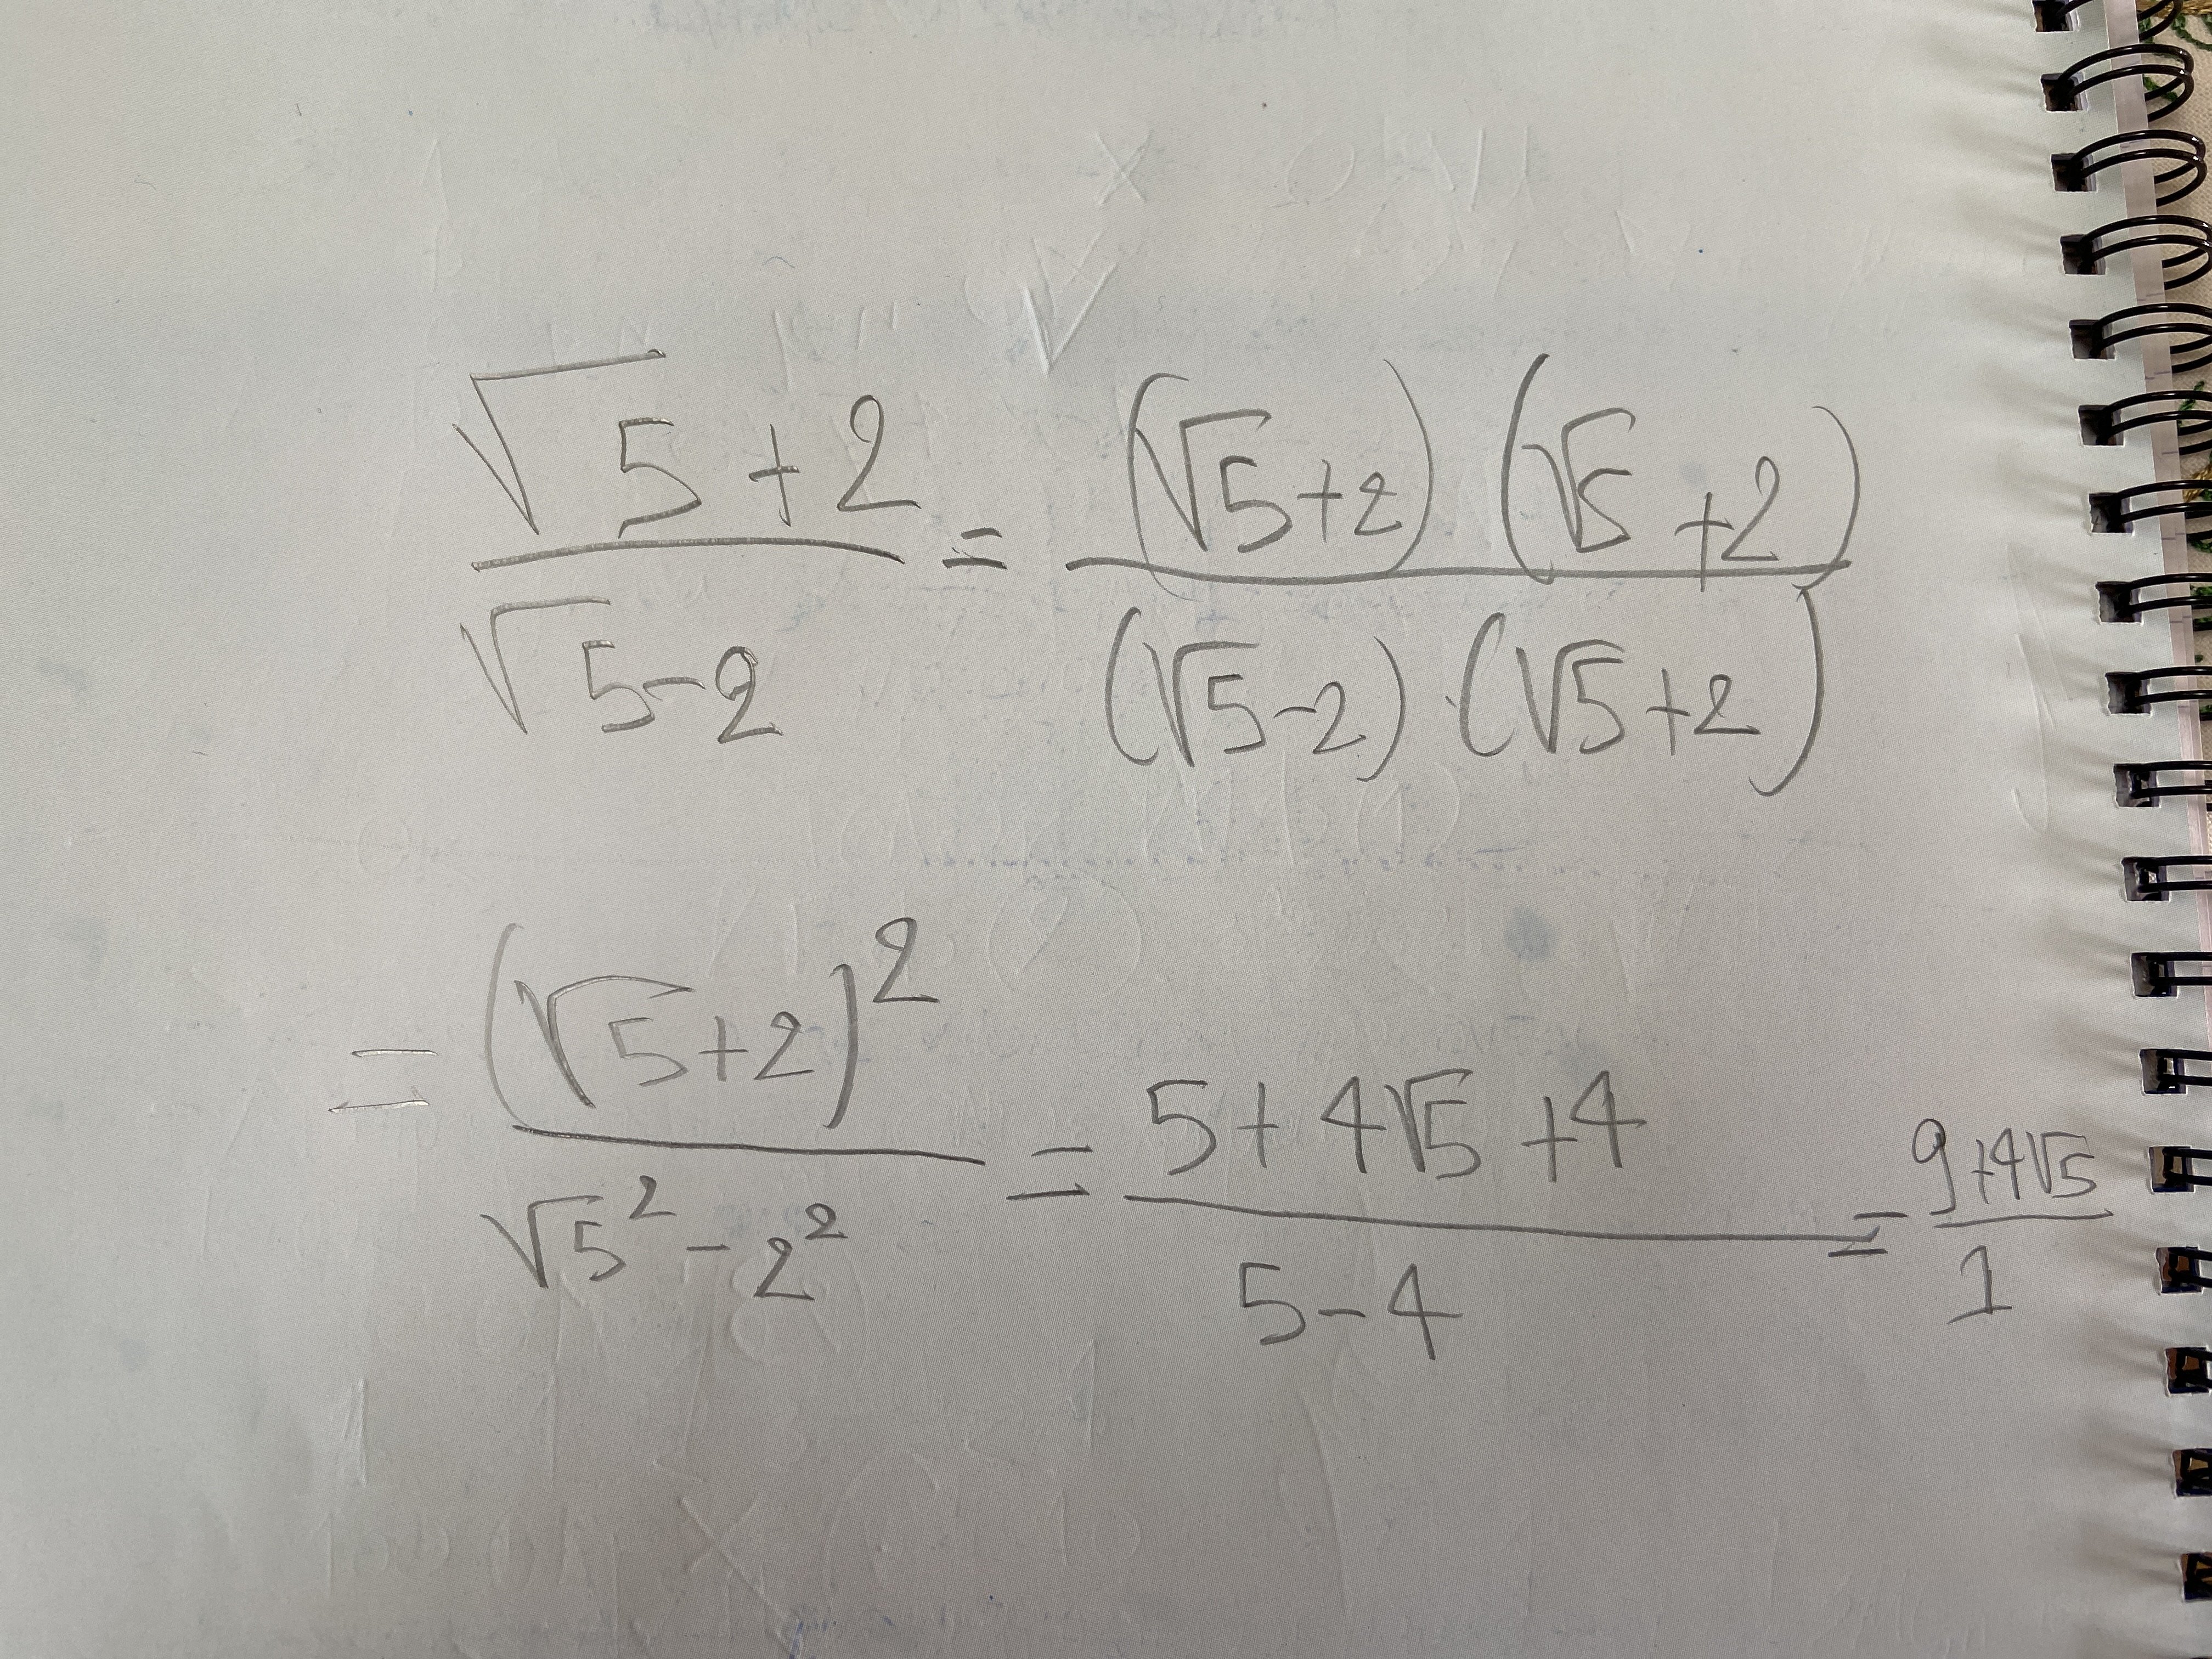 (√5+2)/(√5-2) = ((√5+2)(√5+2))/((√5-2)·(√5+2))
= (√5+2)²/(√5²-2²) = (5+4√5+4)/(5-4) = (9+4√5)/1